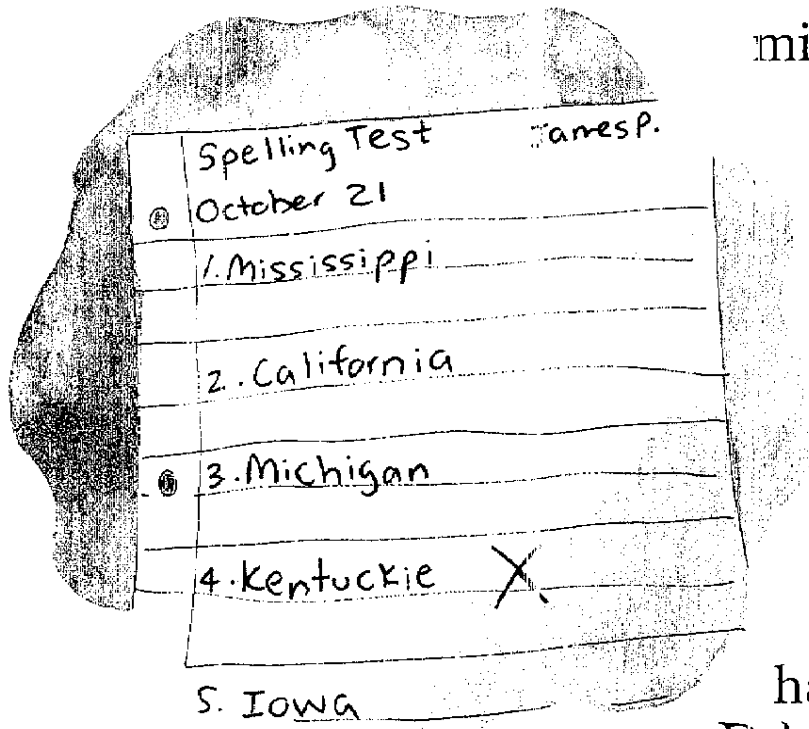 mi
Spelling Test James P.
October 21
1. Mississippi
2. California
3. Michigan
4. Kentuckie X
5. Iowa
ha